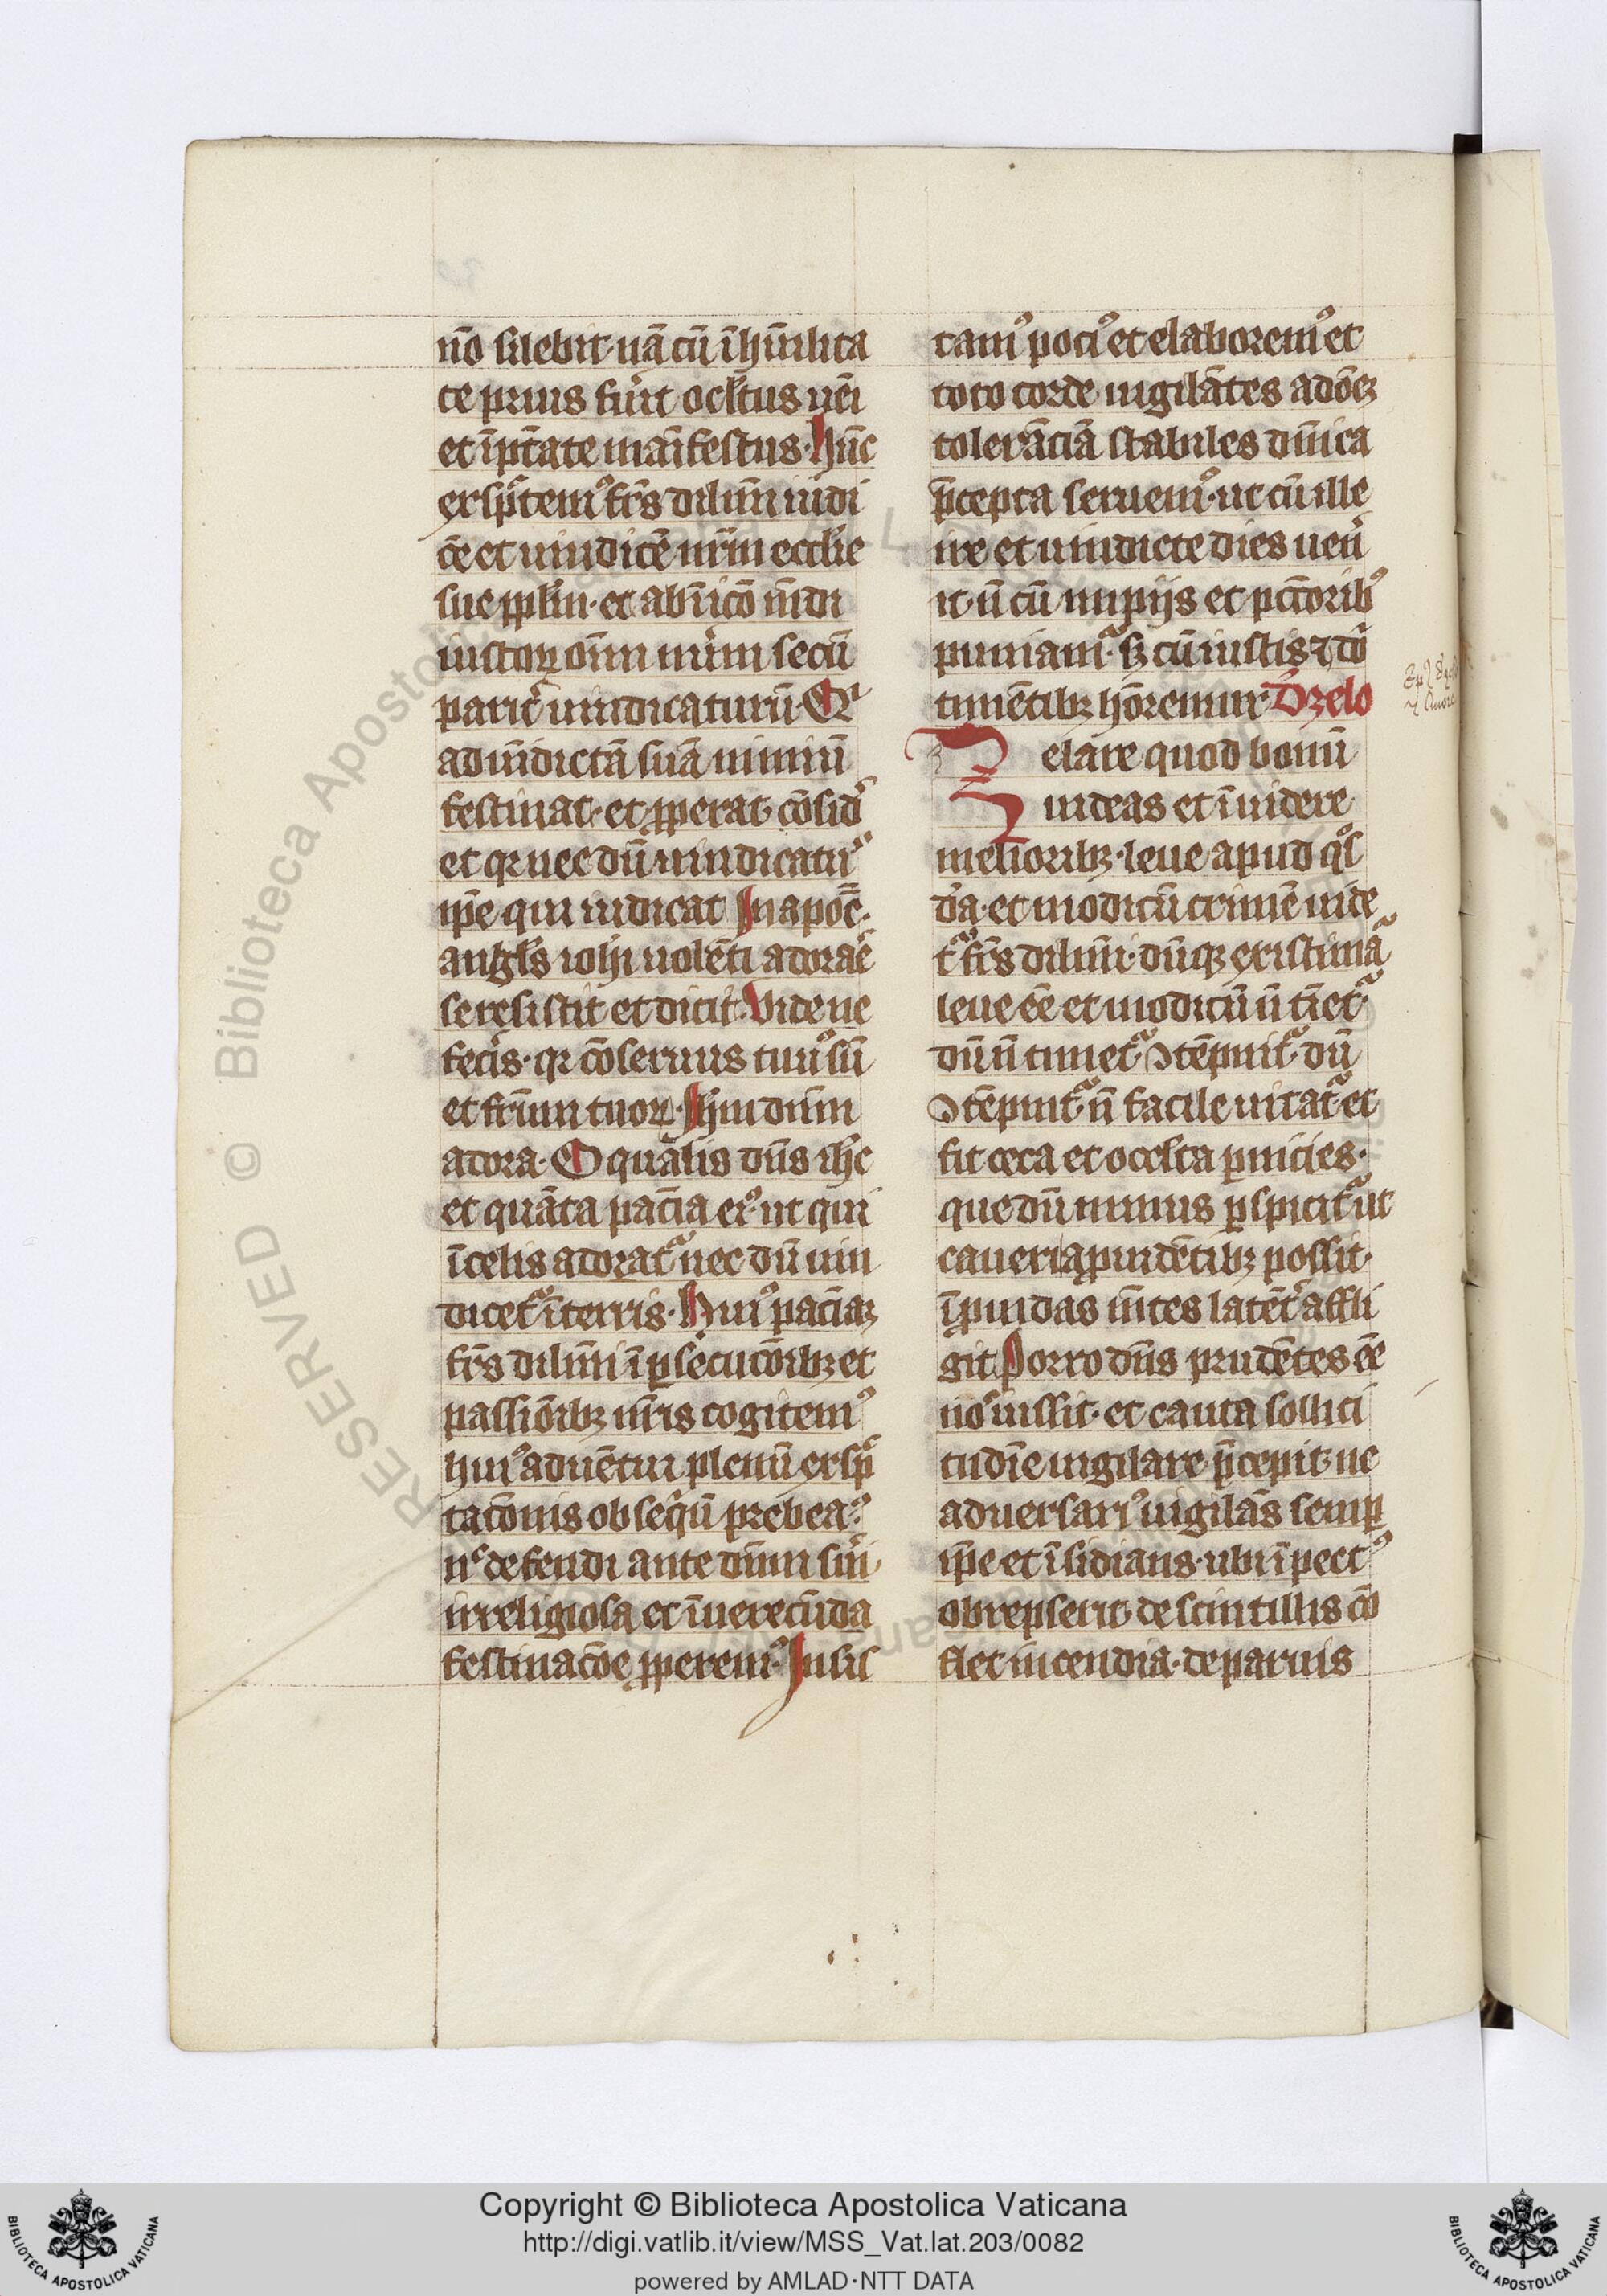 nō silebit· nā cū ī hūilita
te prius fu͛it ocl̄tus uēi
et ī ptāte manīfestus· hūc
exsp̄temꝰ fr̄s dilm̄i iudi
cē et uindicē nr̄m eccl̄ie
sue ppl̄m· et ab inicō mūdi
iustoꝝ om̄i nūm secū
parit͛ uindicaturū· Qͥ
ad uīdictā suā nimiū
festinat· et ꝓperat· cōsid͛
et qꝛ nec dū uindicatꝰ
ip̄e qui iudicat Jn apōc̄·
angl̄s ioh̄i uolēti adorāe
se resistit et dicit· Vide ne
fec͛is· qꝛ cōseruus tuꝰ sū
et fr̄um tuoꝝ· Jh̄m dnm̄
adora· O qualis dn̄s ih̄c
et quāta pacīa eiꝰ· ut qui
ī celis adoratᷓ nec dū uin
dicetᷓ ī terris· Huiꝰ pacīaꝫ
fr̄s dilm̄i ī ꝑsecucōibꝫ et
passiōibꝫ nr̄is cogitemꝰ
huiꝰ aduētui plenū exsp̄
tacōnis obseqͥū prebeaꝰ·
nͨ defendi ante dnm̄ s͛ui
irreligiosa et īuerecūda
festinacōe ꝓperemꝰ· Jnsis
tamꝰ pociꝰ et elaboremꝰ et
toto corde uigilātes ad oēꝫ
tolerāciā stabiles dn̄ica
p̄cepta seruemꝰ· ut cū ille
ire et uindicte dies uen͛
it· n̄ cū impijs et pcc̄toribꝰ
puniamᷓ· sꝫ cū iustis ⁊ dō
timētibꝫ hōremur· D͛ zelo
Zelare quod bonū
uideas et īuidere
melioribꝫ· leue apud qͦs
d͛a· et modicū crimē uide
tᷓ fr̄s dilm̄i· dūqꝫ existimaᷓ
leue ēe et modicū n̄ tīetᷓ·
dū n̄ timetᷓ ꝯtēpnitᷓ· dū
ꝯtēpnitᷓ n̄ facile uitatᷓ· et
fit ceca et ocl̄ta ꝑnicies·
que dū minus ꝑspicitᷓ ut
caueri a prudētibꝫ possit·
īprudas mētes latēt͛ affli
git· Porro dn̄s prudētes ēe
noˢ iussit· et cauta sollici
tudīe uigilare p̄cepit· ne
aduersariꝰ uigilās semꝑ
ip̄e et īsidians· ubi ī pectꝰ
obrepserit· de scintillis cō
flet incendia· de paruis
Copyright © Biblioteca Apostolica Vaticana
http://digi.vatlib.it/view/MSS_Vat.lat.203/0082
powered by AMLAD·NTT DATA
BIBLIOTECA APOSTOLICA VATICANA
BIBLIOTECA APOSTOLICA VATICANA